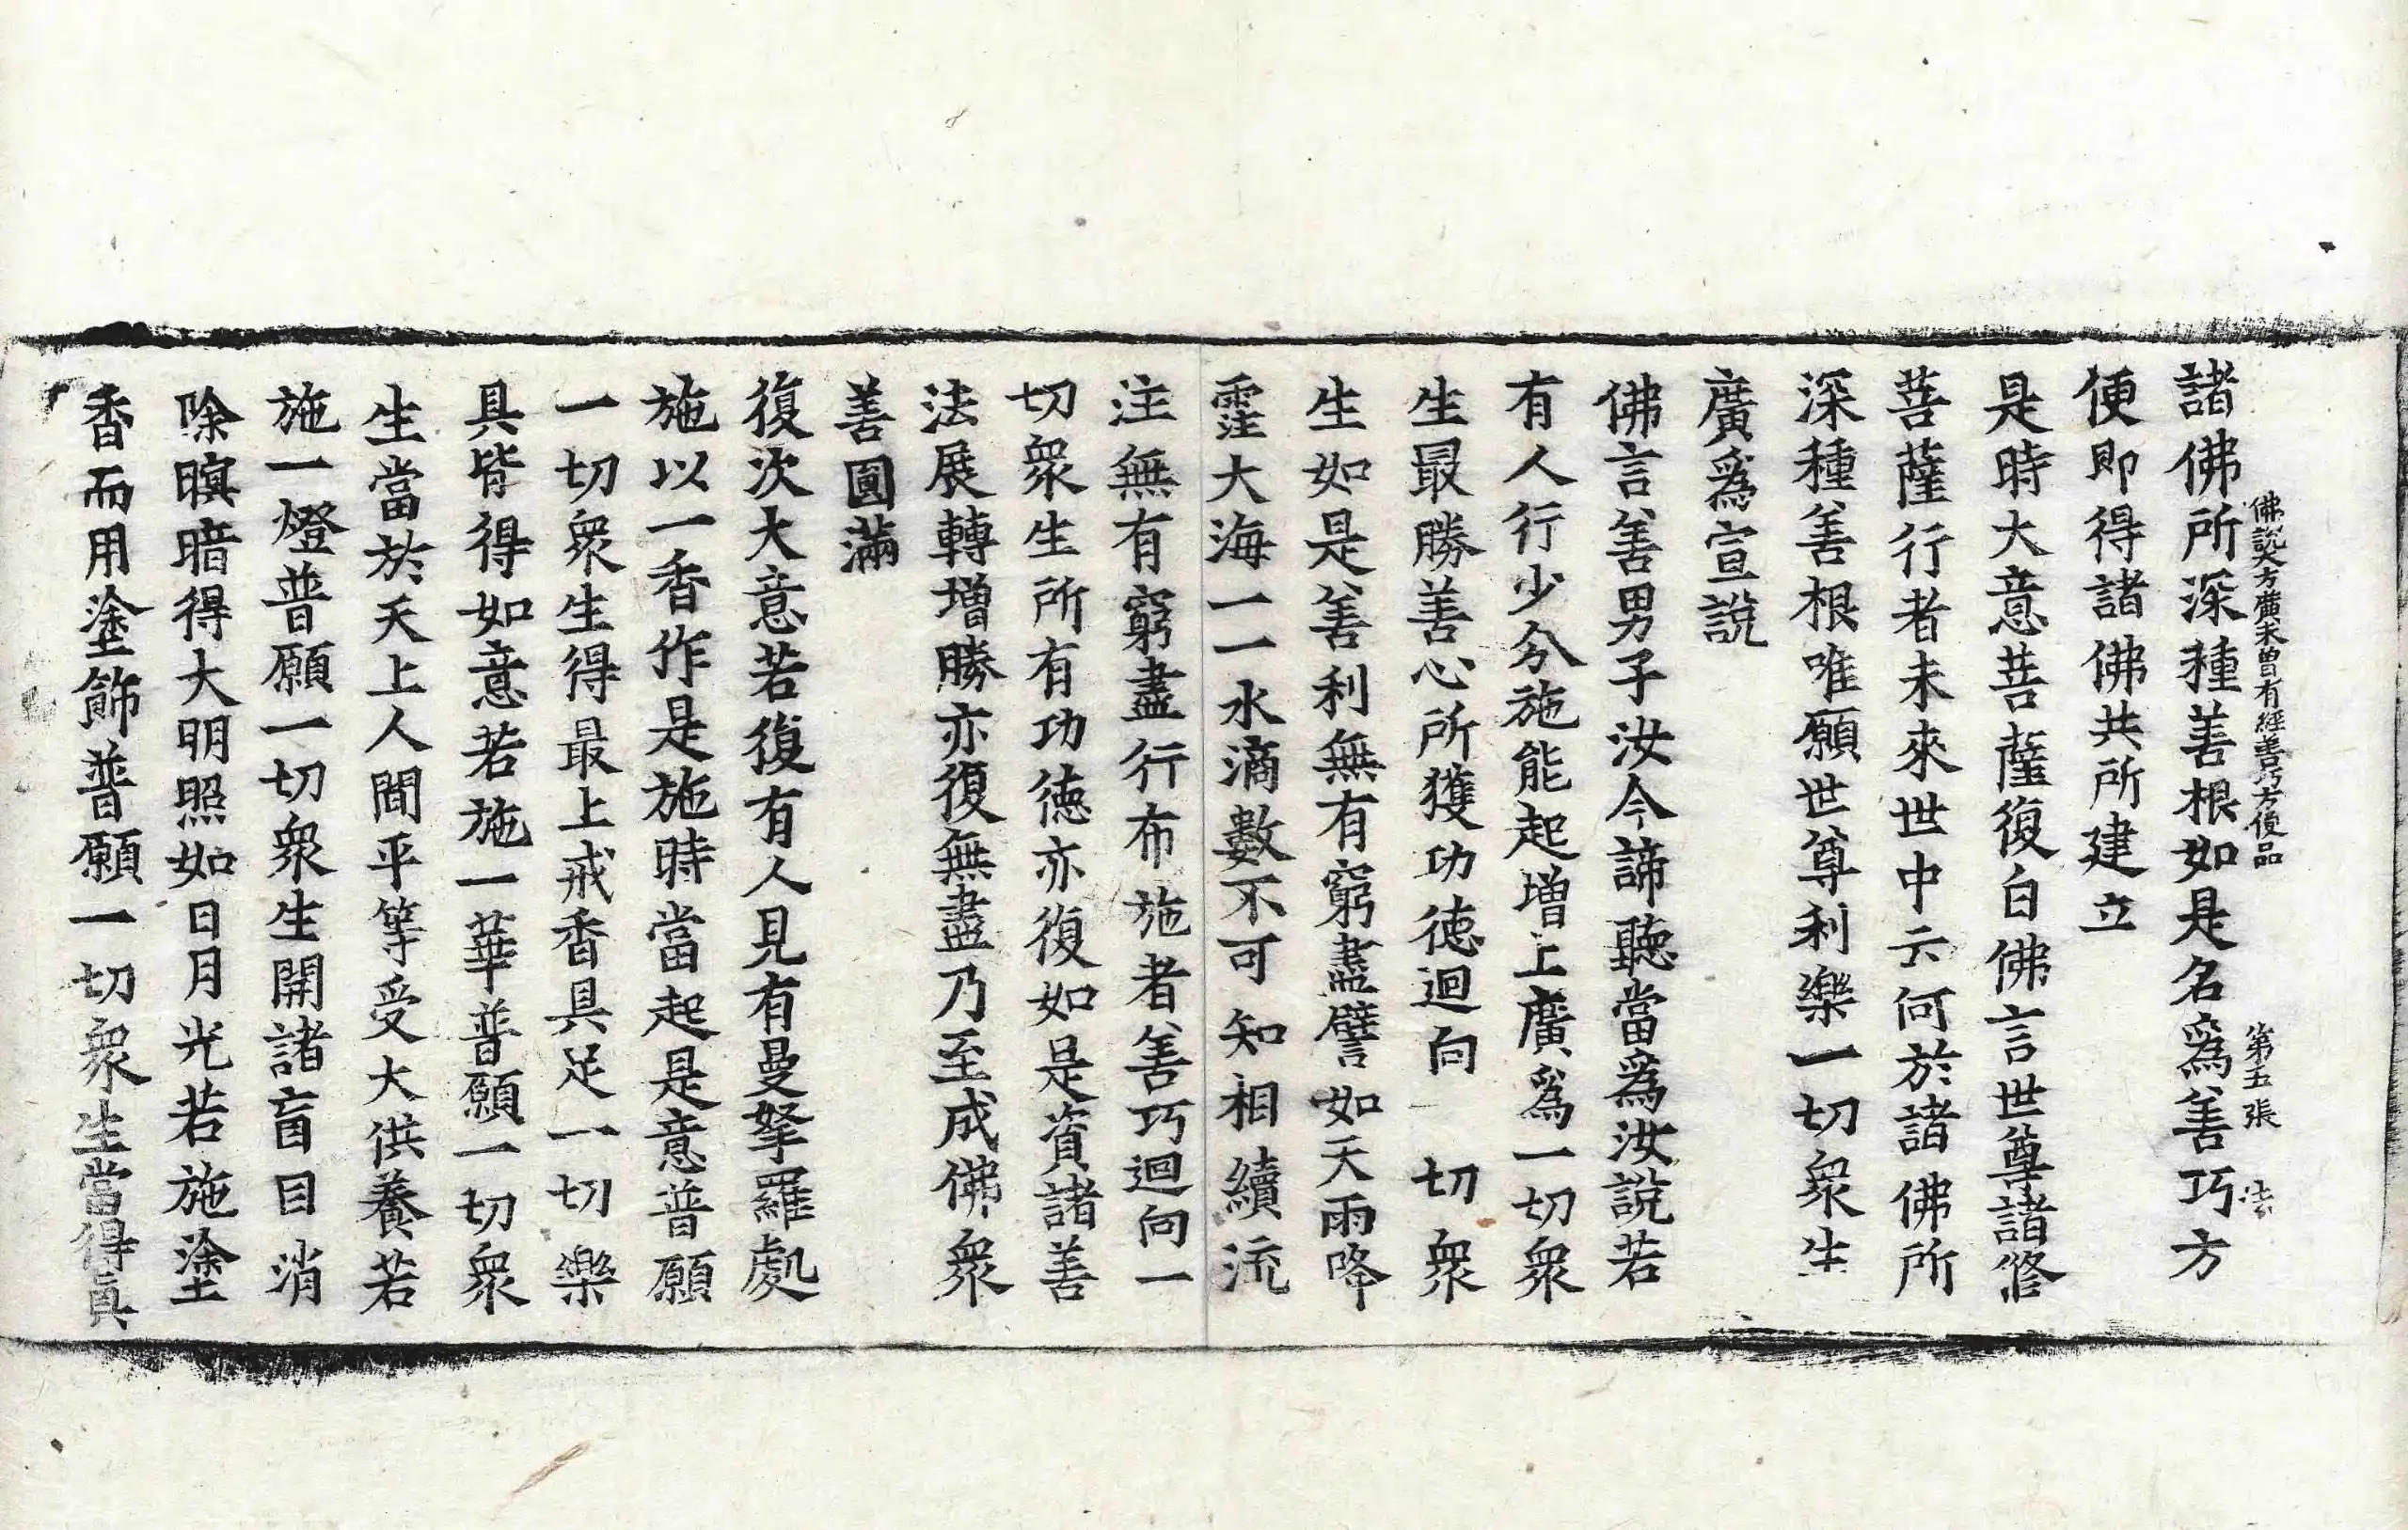 佛說大方廣未曾有經善巧方便品 第五張 法
諸佛所深種善根如是名爲善巧方
便即得諸佛共所建立
是時大意菩薩復白佛言世尊諸修
菩薩行者未來世中云何於諸佛所
深種善根唯願世尊利樂一切衆生
廣爲宣說
佛言善男子汝今諦聽當爲汝說若
有人行少分施能起增上廣爲一切衆
生最勝善心所獲功德迴向一切衆
生如是善利無有窮盡譬如天雨降
霔大海一一水滴數不可知相續流
注無有窮盡行布施者善巧迴向一
切衆生所有功德亦復如是資諸善
法展轉增勝亦復無盡乃至成佛衆
善圓滿
復次大意若復有人見有曼拏羅處
施以一香作是施時當起是意普願
一切衆生得最上戒香具足一切樂
具皆得如意若施一華普願一切衆
生當於天上人間平等受大供養若
施一燈普願一切衆生開諸盲目消
除暝暗得大明照如日月光若施塗
香而用塗飾普願一切衆生當得眞